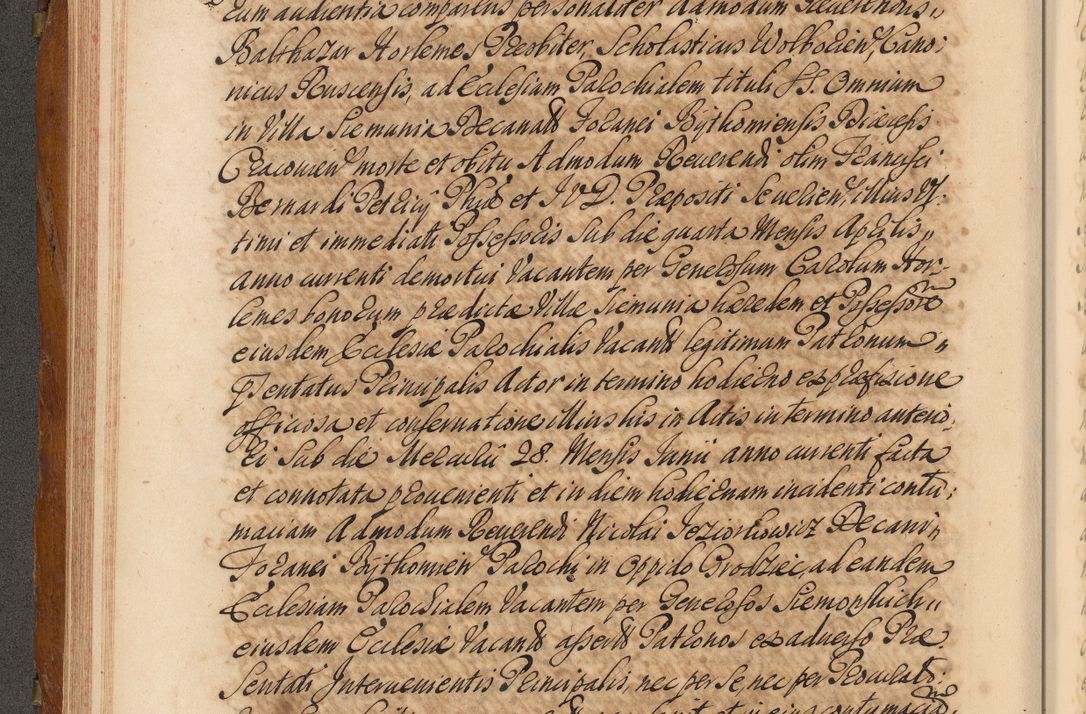 Eum audientia comparens personaliter Admodum Reverendus
Balthazar Horlemes Præsbiter, Scholasticus Wolbodien, Cano:
nicus Pluscensis, ad Ecclesiam Parochialem tituli SS. Omnium
in Villa Siemunia Decanatus Foranei Bythomiensis Diæcesis
Cracovien morte et obitu Admodum Reverendi olim Francisci
Bernardi Petricij Phiæ et I V D. Præpositi Sevelien illius Ul:
timi et immediati Possessoris sub die quarta Mensis Aprilis
anno currenti demortui Vacantem per Generosum Carolum Hor:
lemes bonorum prædictæ Villæ Siemunia hæredem et Possessorem
eiusdem Ecclesiæ Parochialis Vacantis legitimum Patronum
Præsentatus Principalis Actor in termino hodierno ex præfixione
officiosa et conservatione illius his in Actis in termino anterio:
ri sub die Mercurii 28. Mensis Junii anno currenti facta
et connotata provenienti et in diem hodiernam incidenti contu:
maciam Admodum Reverendi Nicolai Jeziorkowicz Decani
Foranei Bythomien Parochi in Oppido Grodziec, ad eandem
Ecclesiam Parochialem Vacantem per Generosos Siemonskich
eiusdem Ecclesiæ Vacantis assertos Patronos ex adverso Præ
sentati Intervenientis Principalis, nec per se, nec per Procurato: